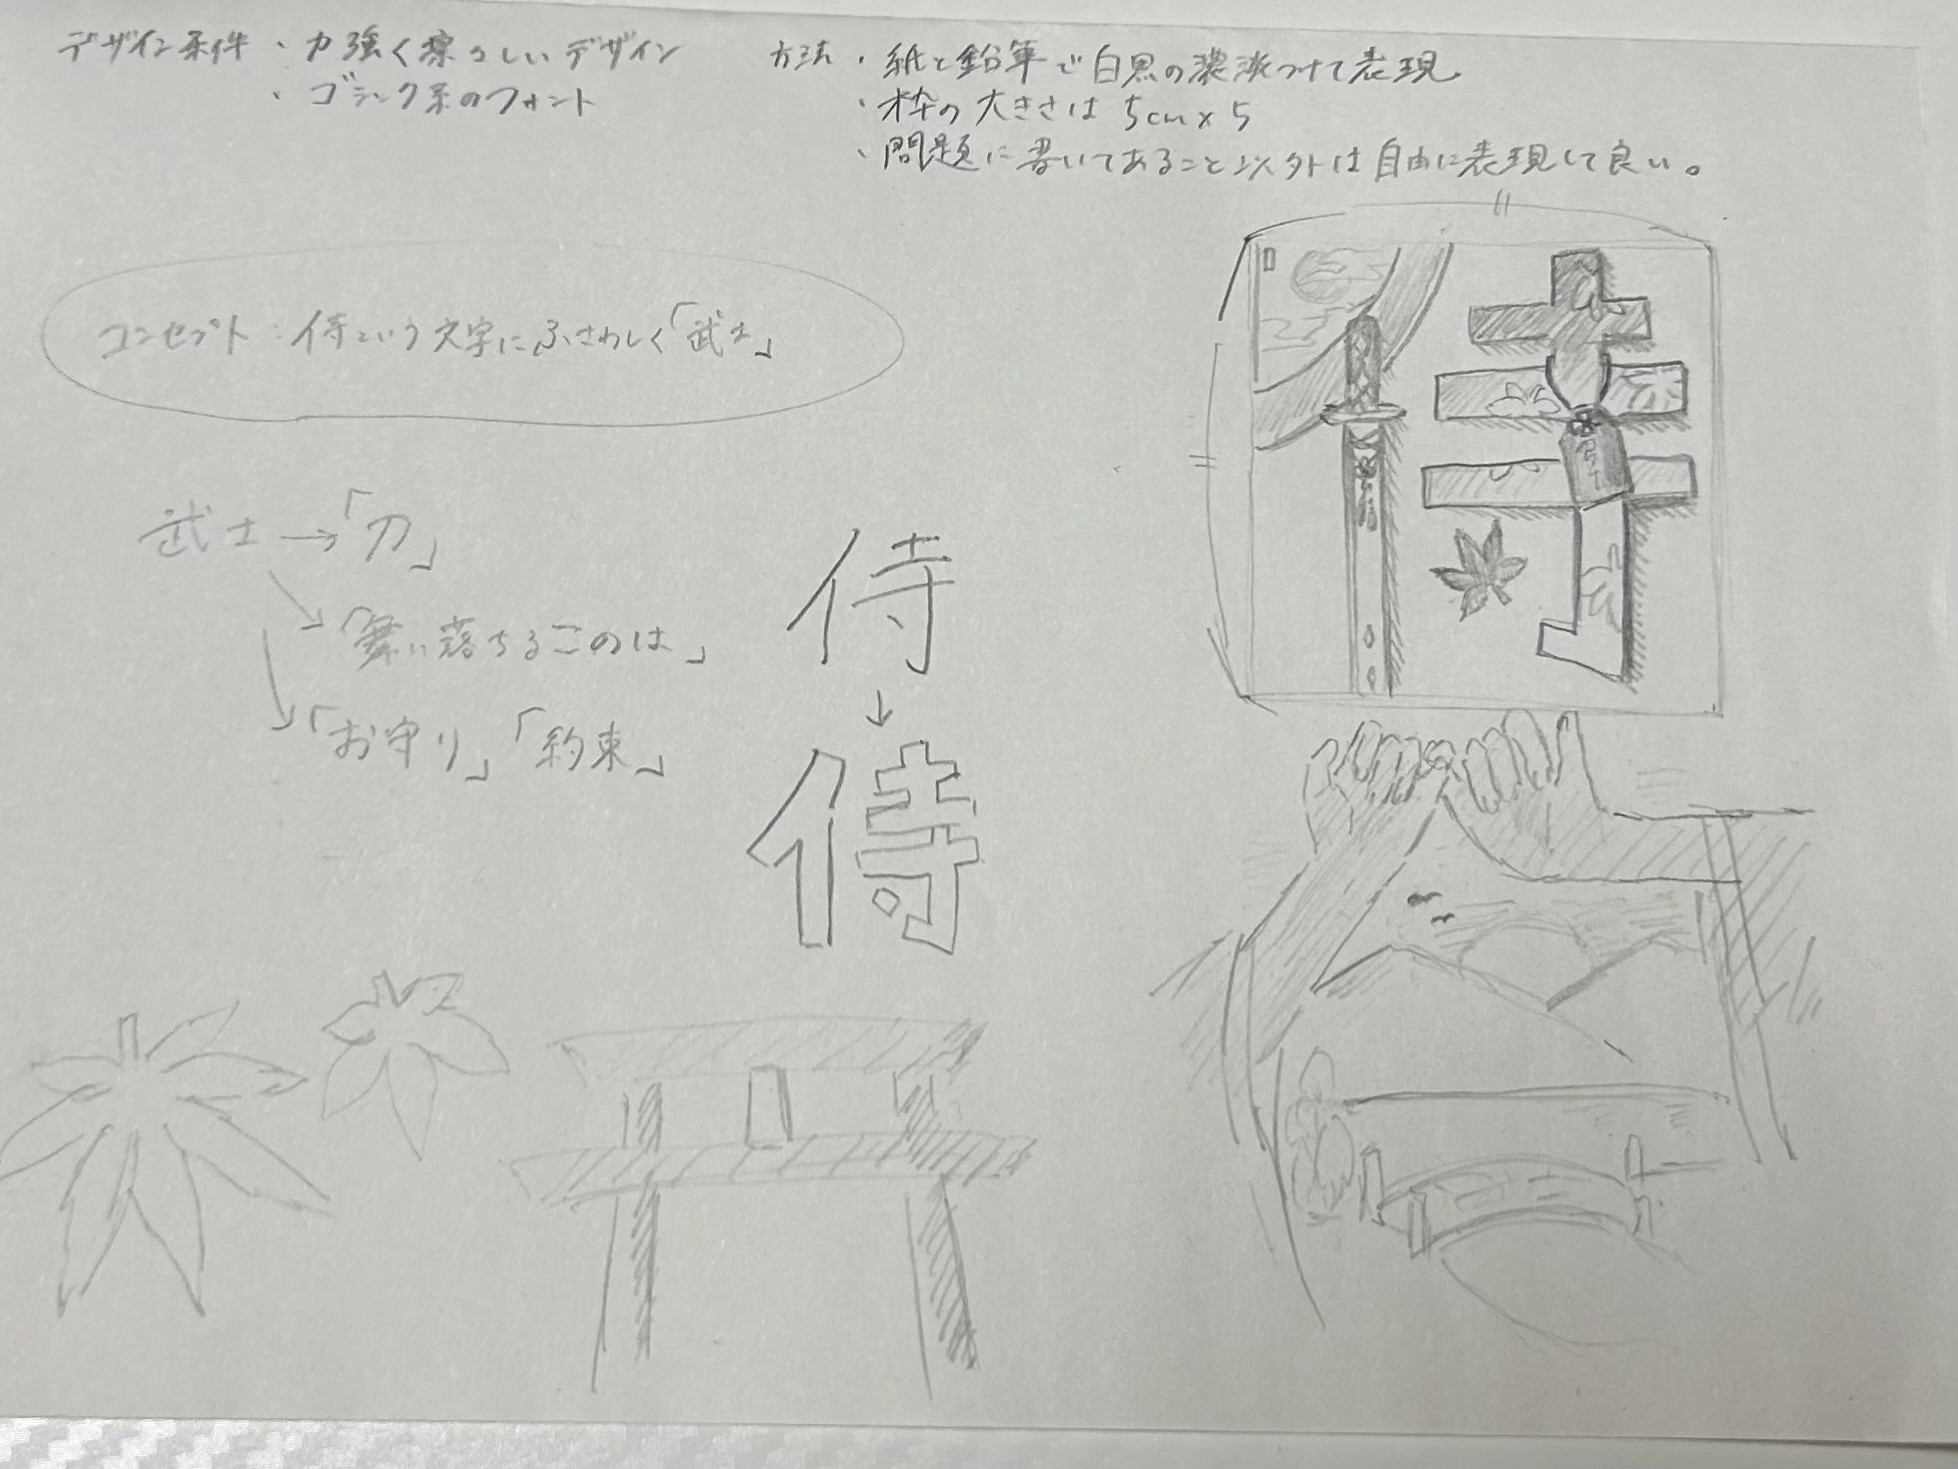 デザイン条件 ・力強く凛々しいデザイン
・ゴシック系のフォント
方法 ・紙と鉛筆で白黒の濃淡つけて表現
・枠の大きさは 5cm×5
・問題に書いてあること以外は自由に表現して良い。
コンセプト:侍という文字にふさわしく「武士」
武士→「刀」
「舞い落ちるこのは」
「お守り」「約束」
侍
↓
侍
侍